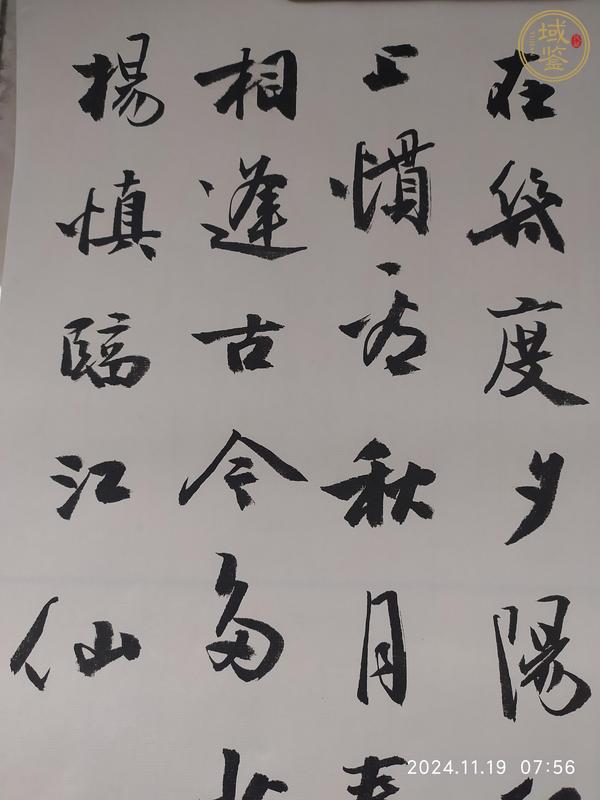 在幾度夕陽
上慣看秋月春
相逢古今多
楊慎臨江仙
域鉴
2024.11.19 07:56